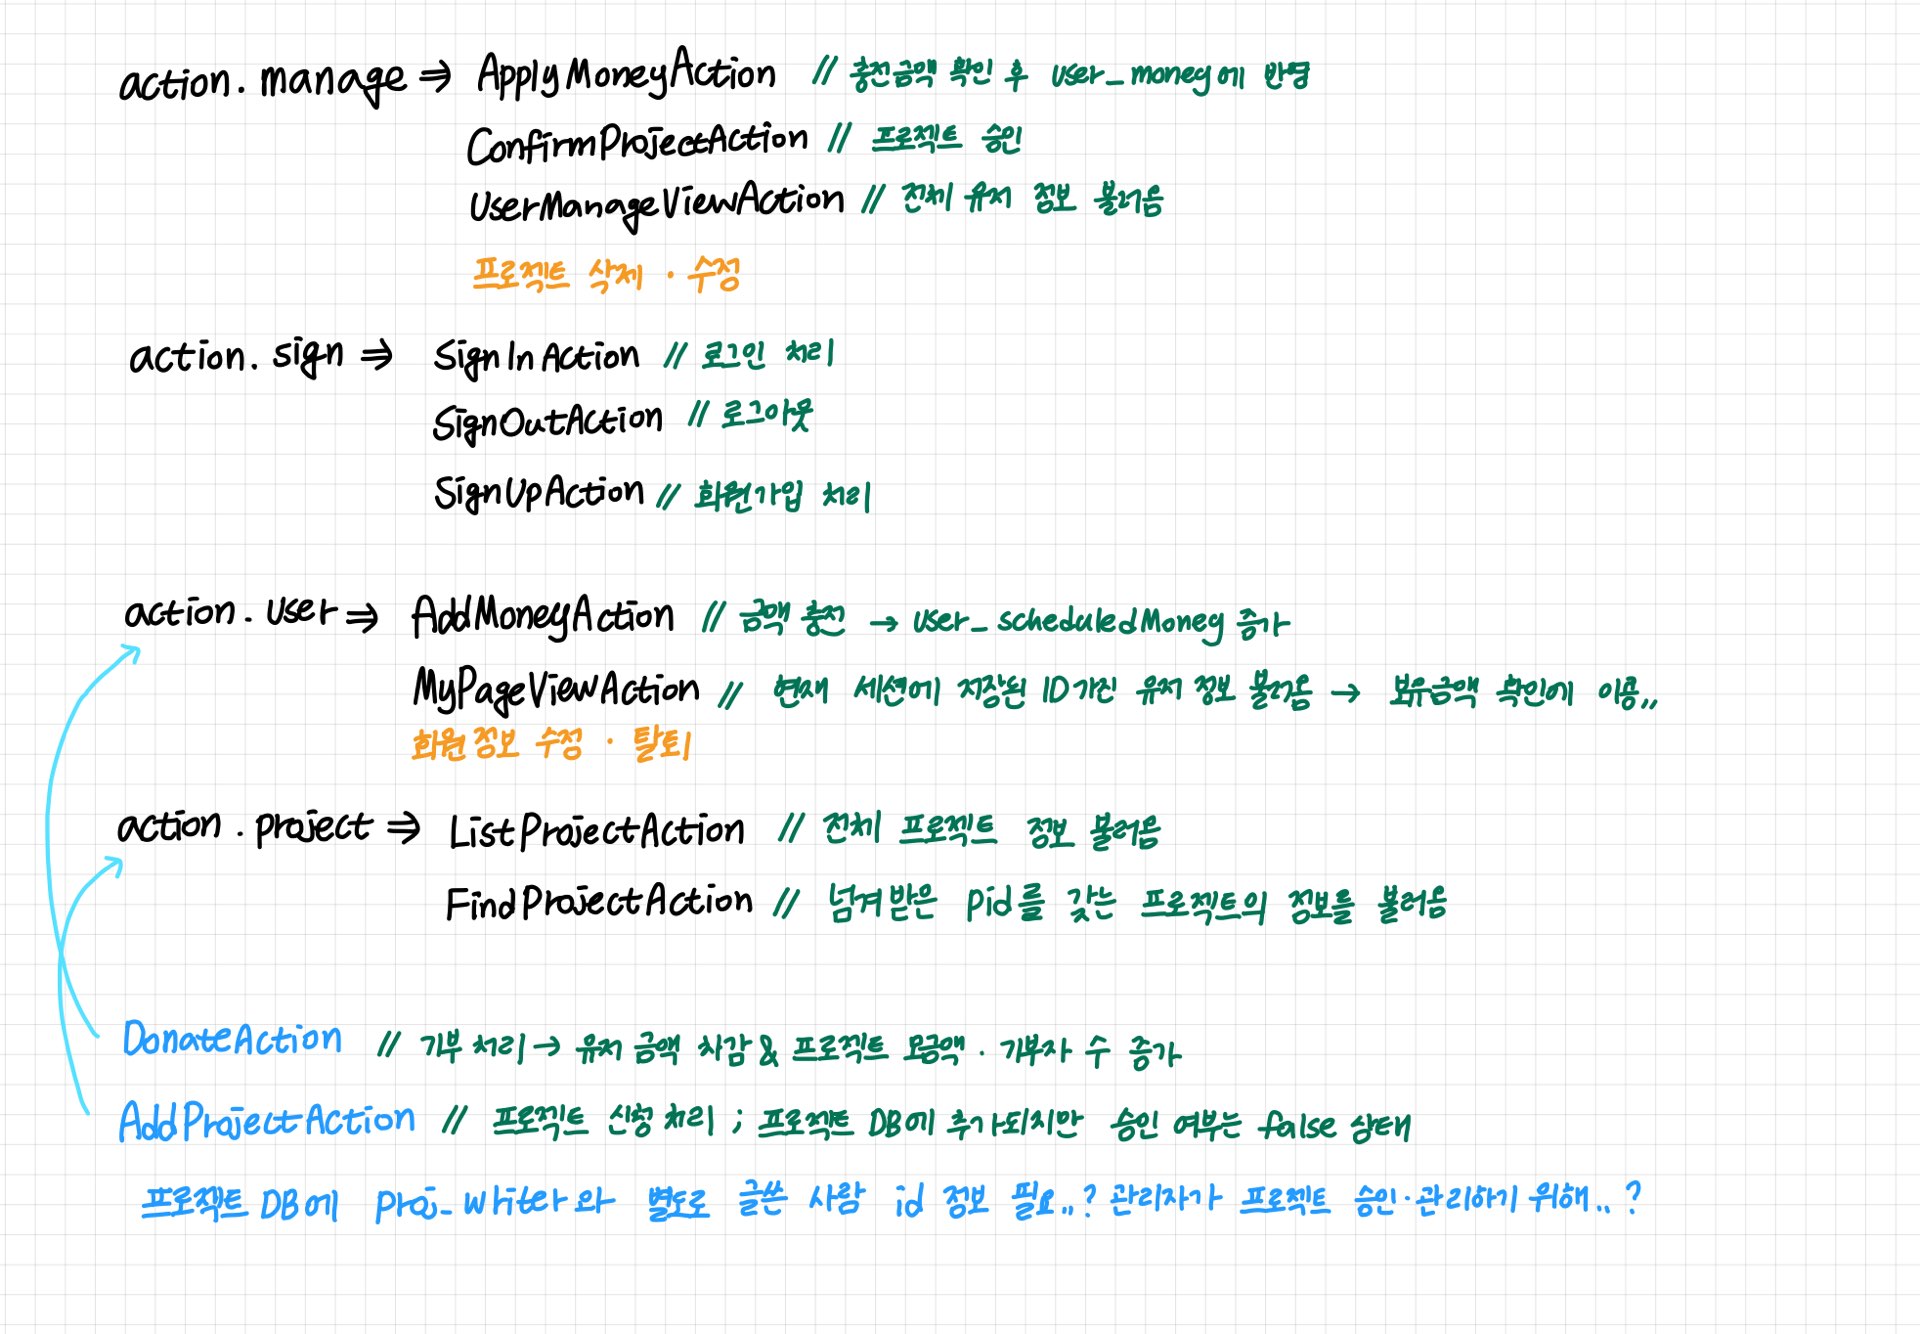 action.manage ⇒ ApplyMoneyAction // 충전금액 확인 후 user_money에 반영
ConfirmProjectAction // 프로젝트 승인
UserManageViewAction // 전체 유저 정보 불러옴
프로젝트 삭제 · 수정
action.sign ⇒ SignInAction // 로그인 처리
SignOutAction // 로그아웃
SignUpAction // 회원가입 처리
action.user ⇒ AddMoneyAction // 금액 충전 → user_scheduledMoney 증가
MyPageViewAction // 현재 세션에 저장된 ID가진 유저 정보 불러옴 → 보유금액 확인에 이용..
회원정보 수정 · 탈퇴
action.project ⇒ ListProjectAction // 전체 프로젝트 정보 불러옴
FindProjectAction // 넘겨받은 pid를 갖는 프로젝트의 정보를 불러옴
DonateAction // 기부 처리 → 유저 금액 차감 & 프로젝트 모금액 · 기부자 수 증가
AddProjectAction // 프로젝트 신청 처리 ; 프로젝트 DB에 추가되지만 승인 여부는 false 상태
프로젝트 DB에 proj_writer와 별도로 글쓴 사람 id 정보 필요..? 관리자가 프로젝트 승인·관리하기 위해..?